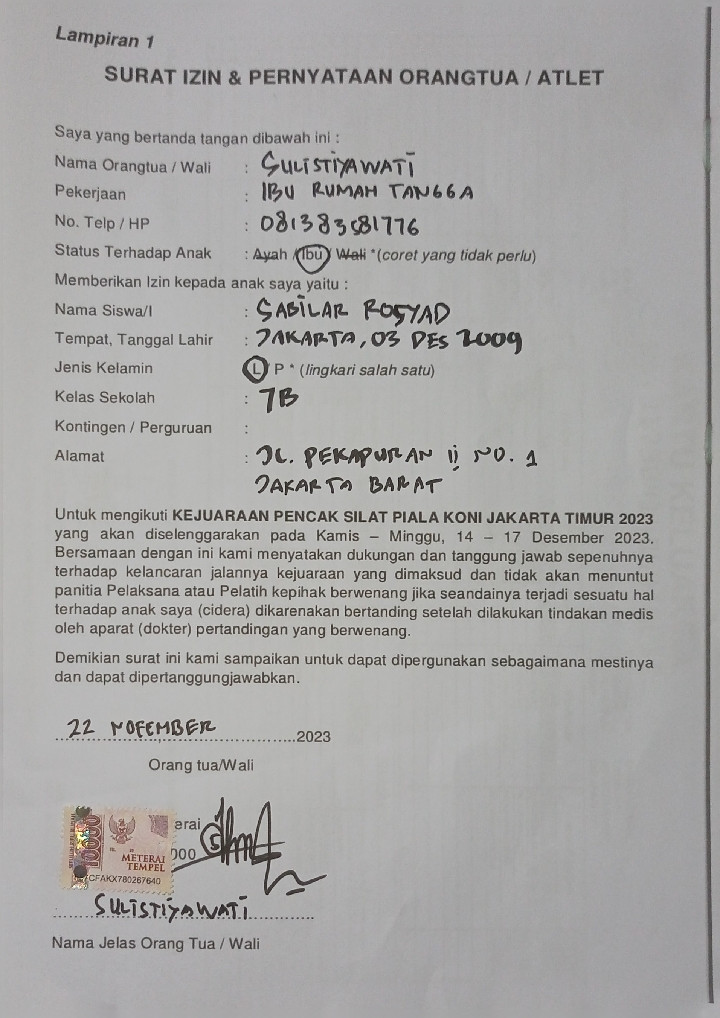 Lampiran 1
SURAT IZIN & PERNYATAAN ORANGTUA / ATLET
Saya yang bertanda tangan dibawah ini :
Nama Orangtua / Wali : SULISTIYAWATI
Pekerjaan : IBU RUMAH TANGGA
No. Telp / HP : 081383581776
Status Terhadap Anak : Ayah / Ibu / Wali *(coret yang tidak perlu)
Memberikan Izin kepada anak saya yaitu :
Nama Siswa/I : SABILAR ROSYAD
Tempat, Tanggal Lahir : JAKARTA, 03 DES 2009
Jenis Kelamin : L P * (lingkari salah satu)
Kelas Sekolah : 7B
Kontingen / Perguruan :
Alamat : JL. PEKAPURAN II NO. 1
JAKARTA BARAT
Untuk mengikuti KEJUARAAN PENCAK SILAT PIALA KONI JAKARTA TIMUR 2023
yang akan diselenggarakan pada Kamis – Minggu, 14 – 17 Desember 2023.
Bersamaan dengan ini kami menyatakan dukungan dan tanggung jawab sepenuhnya
terhadap kelancaran jalannya kejuaraan yang dimaksud dan tidak akan menuntut
panitia Pelaksana atau Pelatih kepihak berwenang jika seandainya terjadi sesuatu hal
terhadap anak saya (cidera) dikarenakan bertanding setelah dilakukan tindakan medis
oleh aparat (dokter) pertandingan yang berwenang.
Demikian surat ini kami sampaikan untuk dapat dipergunakan sebagaimana mestinya
dan dapat dipertanggungjawabkan.
22 NOFEMBER 2023
Orang tua/Wali
erai
10000
METERAI
TEMPEL
000
CFAKX780267640
SULISTIYAWATI
Nama Jelas Orang Tua / Wali